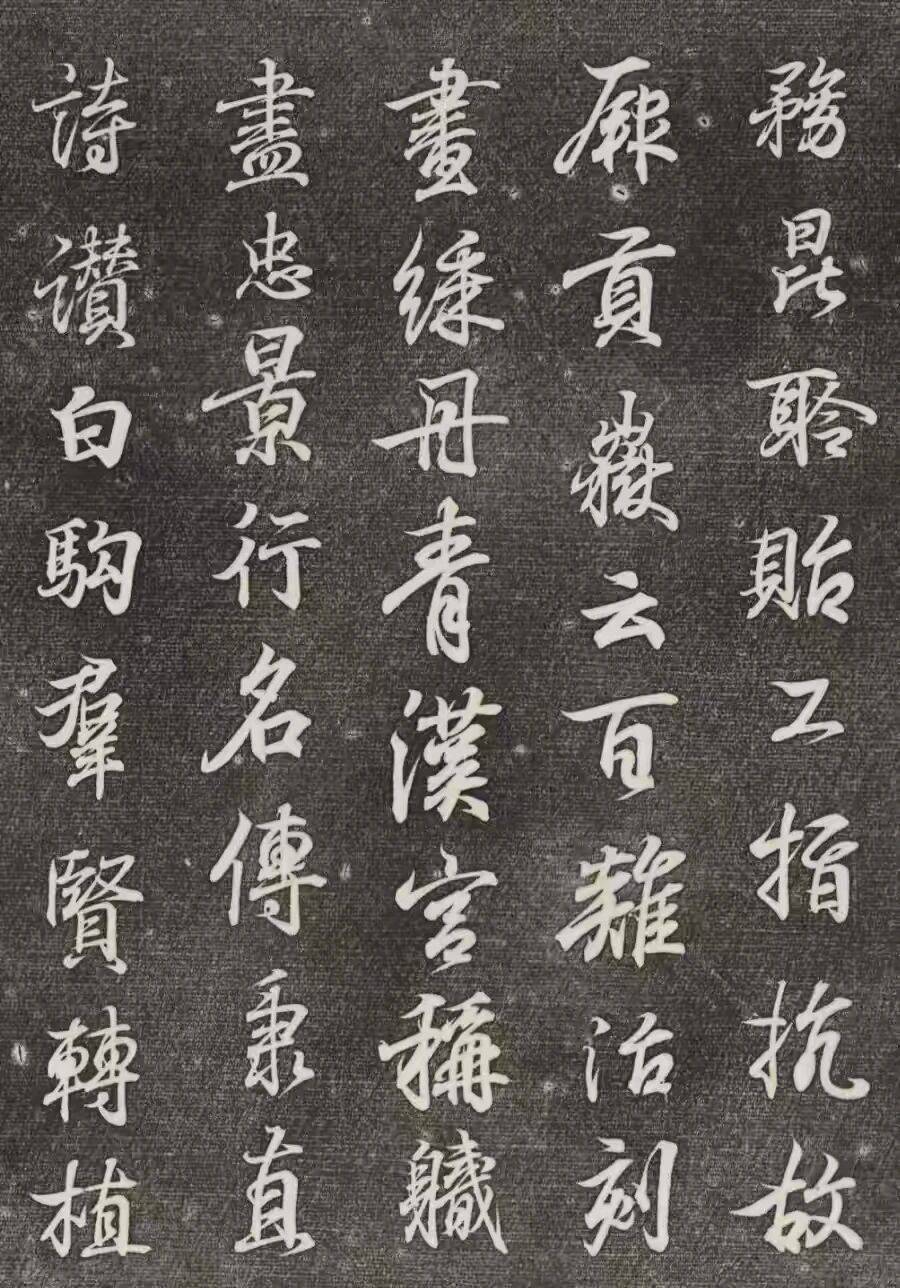 務昆聆貽工指抗故
厥貢嶽云百治刻
畫綵丹青漢宮稱軄
盡忠景行名傳秉直
詩讚白駒羣賢轉植